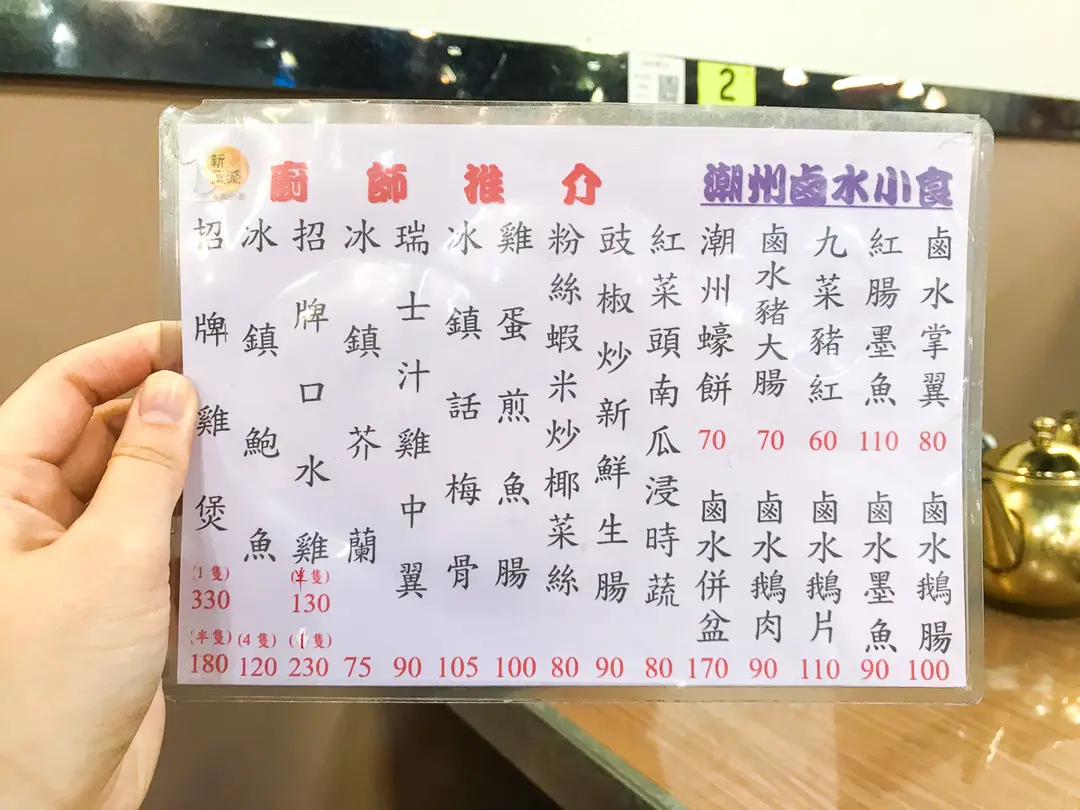 2
新
廚師推介
潮州鹵水小食
招牌雞煲
(1隻)
330
(半隻)
180
冰鎮鮑魚
(4隻)
120
招牌口水雞
(半隻)
130
(1隻)
230
冰鎮芥蘭
75
瑞士汁雞中翼
90
冰鎮話梅骨
105
雞蛋煎魚腸
100
粉絲蝦米炒椰菜絲
80
豉椒炒新鮮生腸
90
紅菜頭南瓜浸時蔬
80
潮州蠔餅
70
鹵水豬大腸
70
九菜豬紅
60
紅腸墨魚
110
鹵水掌翼
80
鹵水併盆
170
鹵水鵝肉
90
鹵水鵝片
110
鹵水墨魚
90
鹵水鵝腸
100